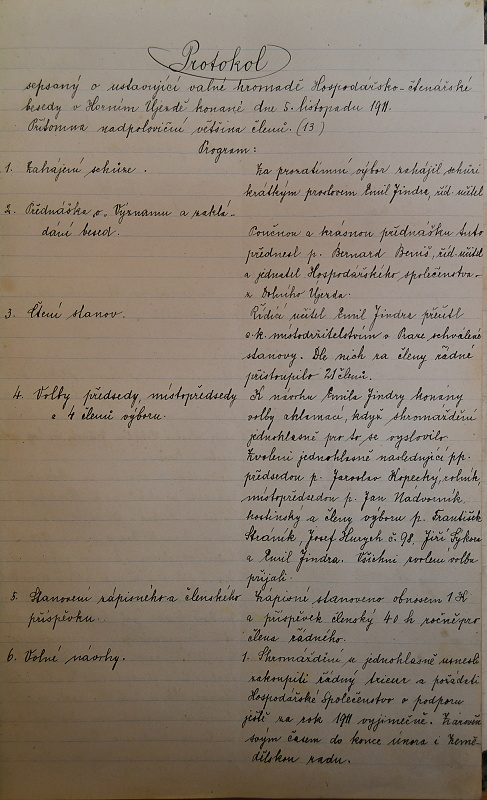 Protokol
sepsaný o ustavující valné hromadě Hospodářsko-čtenářské
besedy v Horním Újezdě konané dne 5. listopadu 1911.
Přítomna nadpoloviční většina členů. (13)
Program:
1. Zahájení schůze.
Za prozatímní výbor zahájil schůzi
krátkým proslovem Emil Jindra, říd. učitel
2. Přednáška "o" Významu a zaklá-
dání besed.
Poučnou a krásnou přednášku tuto
přednesl p. Bernard Beniš, říd. učitel
a jednatel Hospodářského společenstva
z Dolního Újezda.
3. Čtení stanov.
Řídící učitel Emil Jindra přečetl
c. k. místodržitelstvím v Praze schválené
stanovy. Dle nich za členy řádné
přistoupilo 21 členů.
4. Volby předsedy, místopředsedy
a 4 členů výboru.
K návrhu Emila Jindry konány
volby aklamací, když shromáždění
jednohlasně pro to se vyslovilo.
Zvoleni jednohlasně následující pp.
předsedou p. Jaroslav Kopecký, rolník,
místopředsedou p. Jan Nádvorník,
hostinský a členy výboru p. František
Stráník, Josef Hurych č. 98, Jiří Sýkora
a Emil Jindra. Všichni zvolení volbu
přijali.
5. Stanovení zápisného a členského
příspěvku.
Zápisné stanoveno obnosem 1 K
a příspěvek členský 40 h ročně pro
člena řádného.
6. Volné návrhy.
1. Shromáždění se jednohlasně usneslo
zakoupiti řádný trieur a požádati
Hospodářské Společenstvo o podporu
ještě za rok 1911 vyjímečně. Zároveň
svým časem do konce února i Země-
dělskou radu.